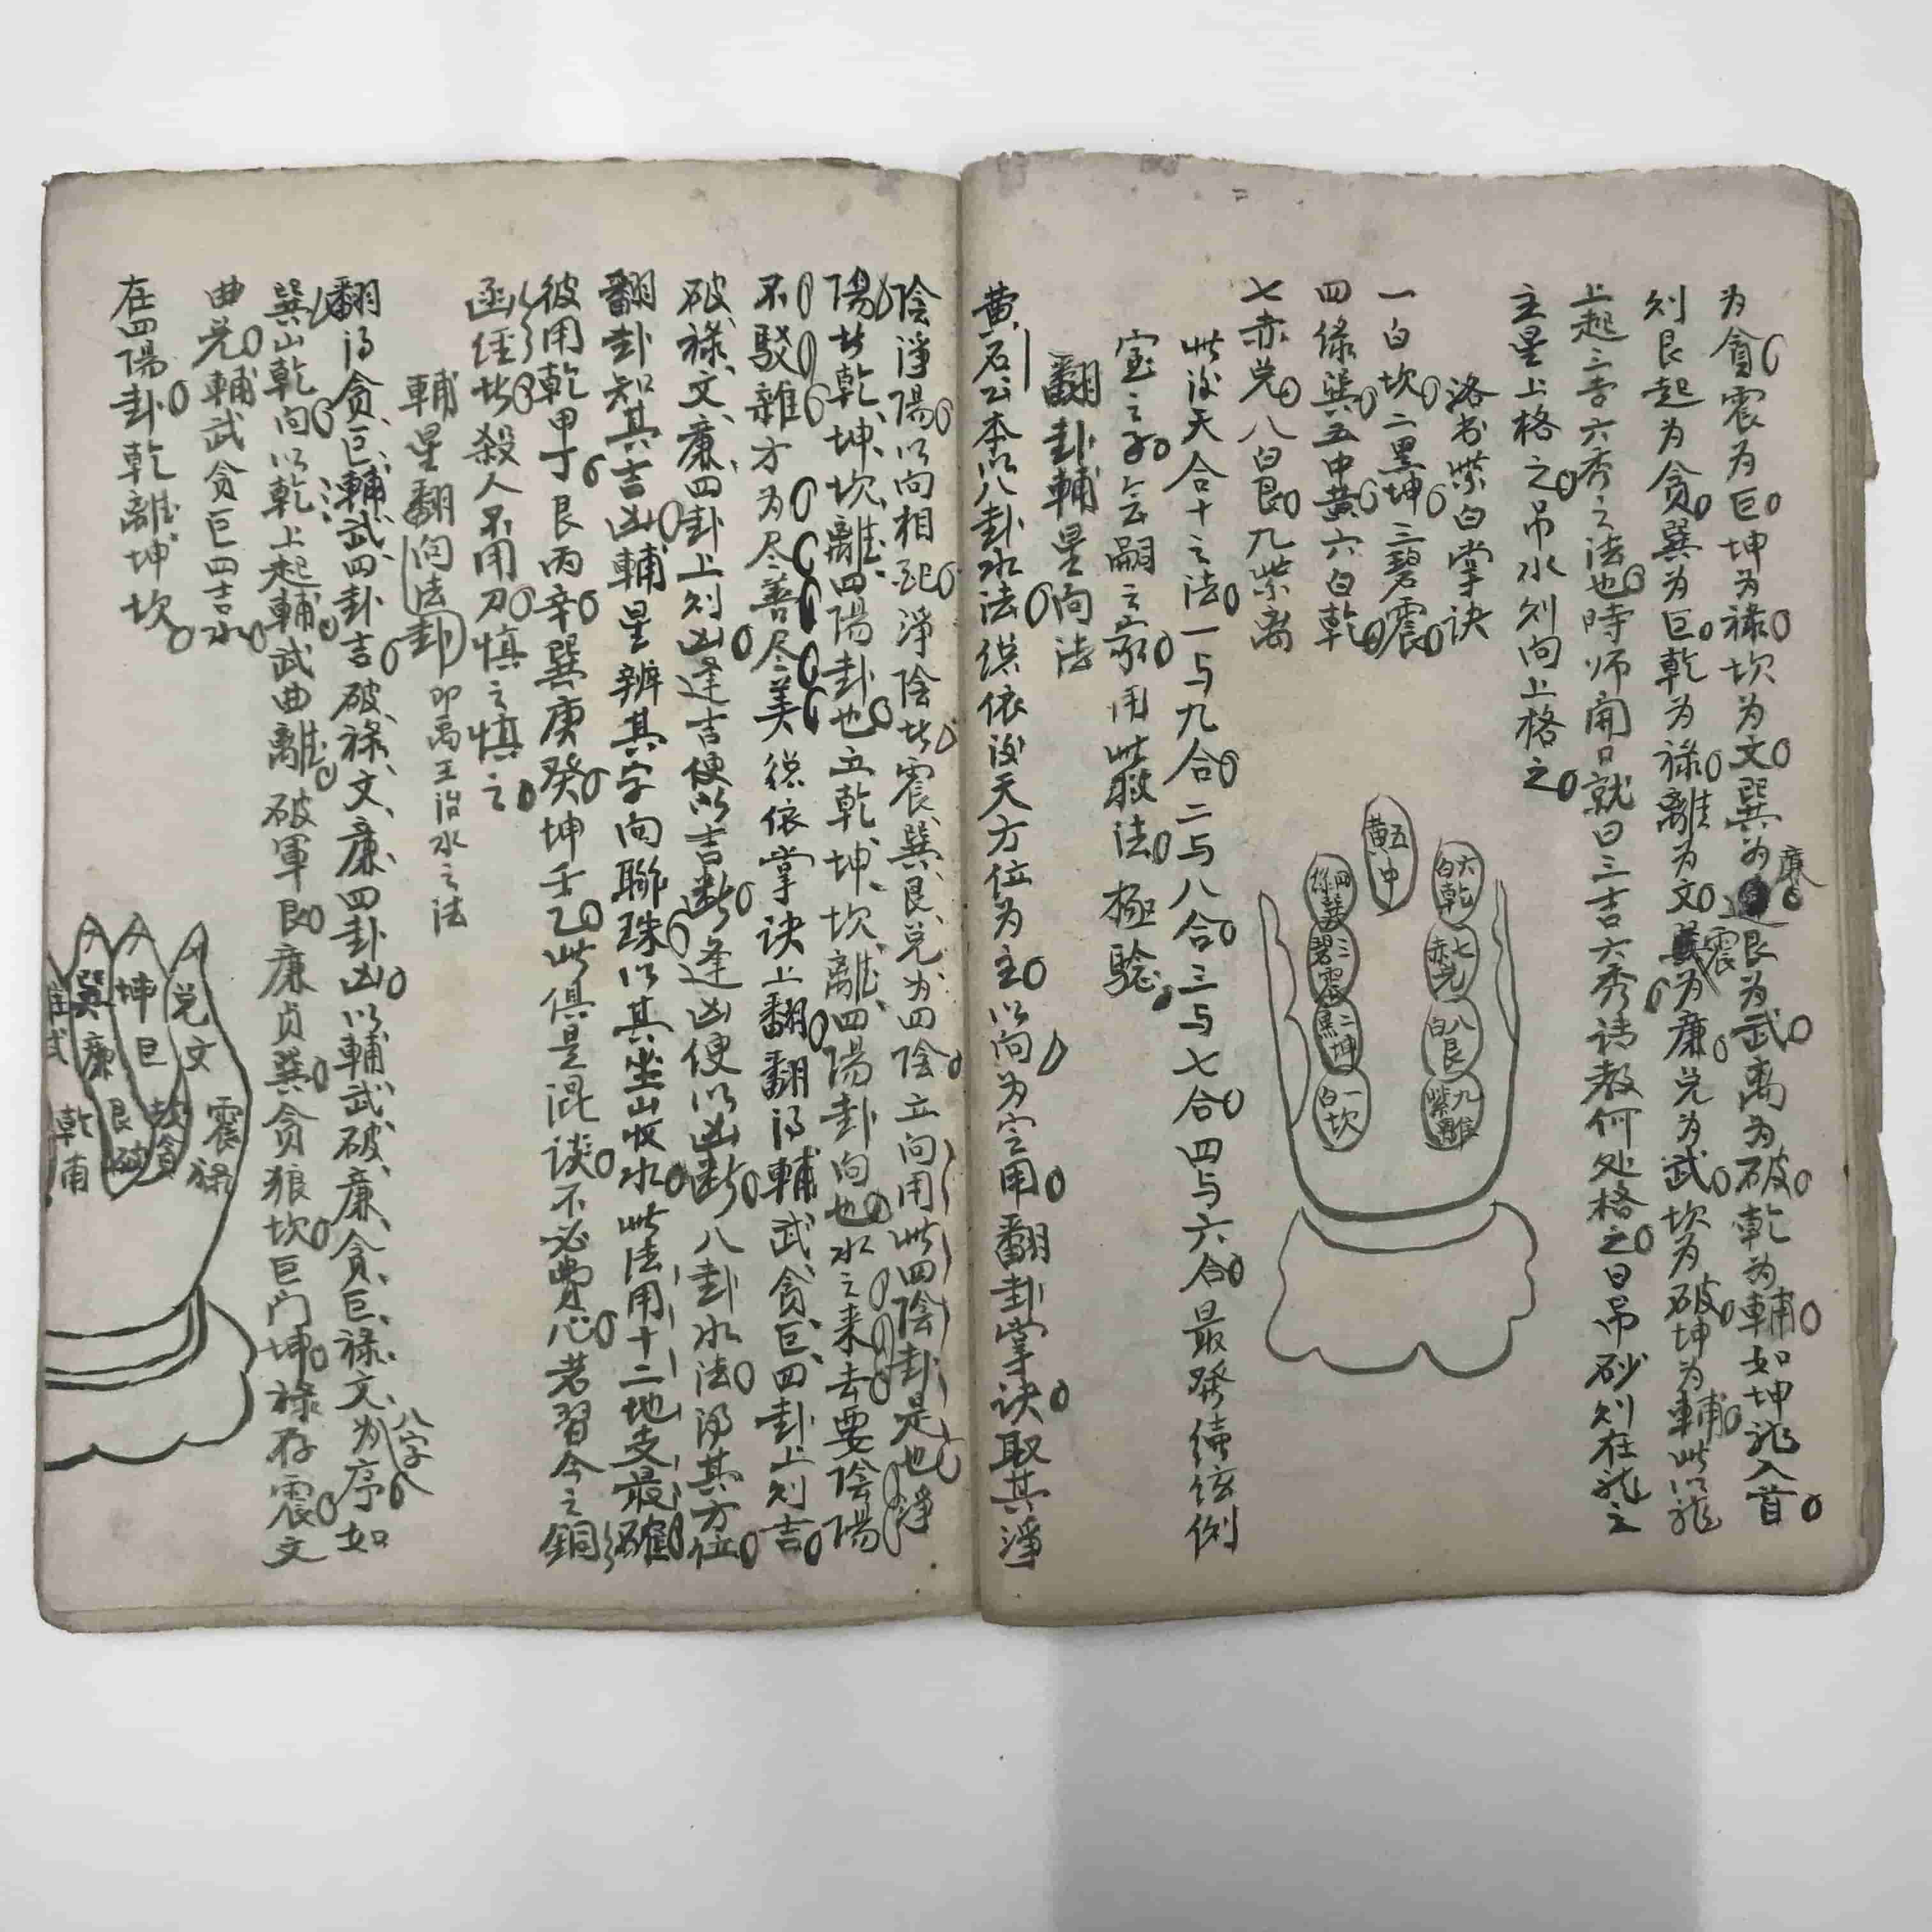 为貪震为巨坤为祿坎为文巽为廉艮为武离为破乾为輔如坤龍入首
则艮起为貪巽为巨乾为祿離为文震为廉兑为武坎为破坤为輔此以龍
上起三吉六秀之法也時师開口就曰三吉六秀請教何处格之曰吊砂则在龍之
主星上格之吊水则向上格之
洛书紫白掌诀
一白坎二黑坤三碧震
四綠巽五中黄六白乾
七赤兑八白艮九紫离
五中黄
六白乾
七赤兑
八白艮
九紫離
四綠巽
三碧震
二黑坤
一白坎
此後天合十之法一与九合二与八合三与七合四与六合最發續弦例
室之子乏嗣之家用此救法極驗
翻卦輔星向法
黄石公本以八卦水法供依後天方位为主以向为定用翻卦掌诀取其淨
陰淨陽以向相配淨陰者震巽艮兑为四陰立向用此四陰卦是也淨
陽者乾坤坎離四陽卦也立乾坤坎離四陽卦向也水之来去要陰陽
不駁雜方为尽善尽美總依掌诀上翻翻得輔武貪巨四卦上则吉
破祿文廉四卦上则凶逢吉便以吉断逢凶便以凶断八卦水法得其方位
翻卦知其吉凶輔星辨其字向聯珠以其坐山收水此法用十二地支最確
彼用乾甲丁艮丙辛巽庚癸坤壬乙此俱是混谈不必費心若習今之銅
函经者殺人不用刀慎之慎之
輔星翻向法卦即禹王治水之法
翻得貪巨輔武四卦吉破祿文廉四卦凶以輔武破廉貪巨祿文八字为序如
巽山乾向以乾上起輔武曲離破軍艮廉贞巽貪狼坎巨门坤祿存震文
曲兑輔武貪巨四吉水
在四陽卦乾離坤坎
兑文
震祿
坤巨
坎貪
巽廉
艮破
乾甫